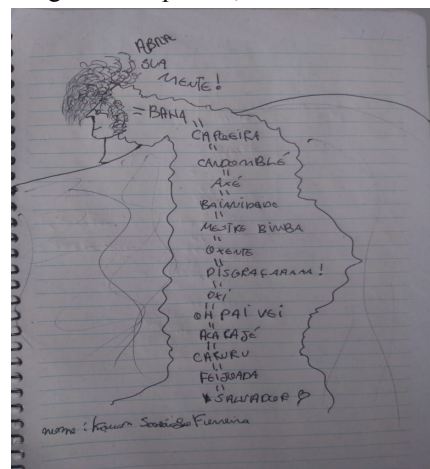 ABRA
SUA
MENTE!
= BAHIA
"
CAPOEIRA
"
CANDOMBLÉ
"
AXÉ
"
BAIANIDADE
"
MESTRE BIMBA
"
OXENTE
"
DISGRAÇAAAAA!
"
OXÍ
"
OH PAÍ VEI
"
ACARAJÉ
"
CARURU
"
FEIJOADA
"
SALVADOR
nome: Ferreira